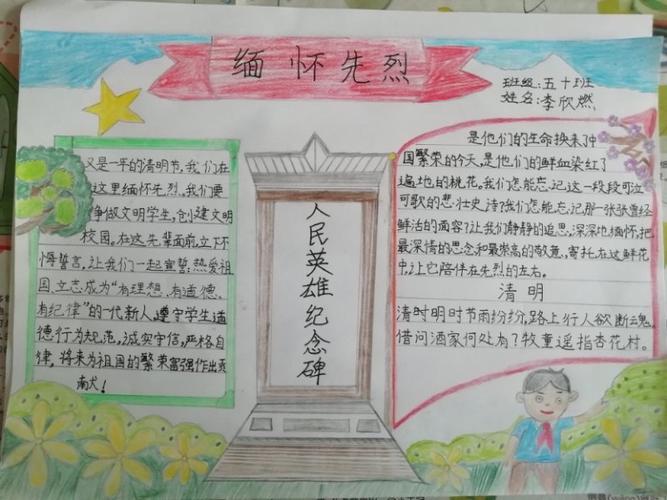 缅怀先烈
班级:五十班
姓名:李欣燃
又是一年的清明节,我们在
这里缅怀先烈,我们要
争做文明学生,创建文明
校园。在这先辈面前,立下不
悔誓言,让我们一起宣誓:热爱祖
国,立志成为“有理想、有道德、
有纪律”的一代新人,遵守学生道
德行为规范,诚实守信,严格自
律,将来为祖国的繁荣富强作出贡
献!
人民英雄纪念碑
是他们的生命换来中
国繁荣的今天,是他们的鲜血染红了
遍地的桃花。我们怎能忘记这一段段可泣
可歌的悲壮史诗?我们怎能忘记那一张张曾经
鲜活的面容?让我们静静的追思,深深地缅怀,把
最深情的思念和最崇高的敬意,寄托在这鲜花
中,让它陪伴在先烈的左右。
清明
清时明时节雨纷纷,路上行人欲断魂。
借问酒家何处有?牧童遥指杏花村。